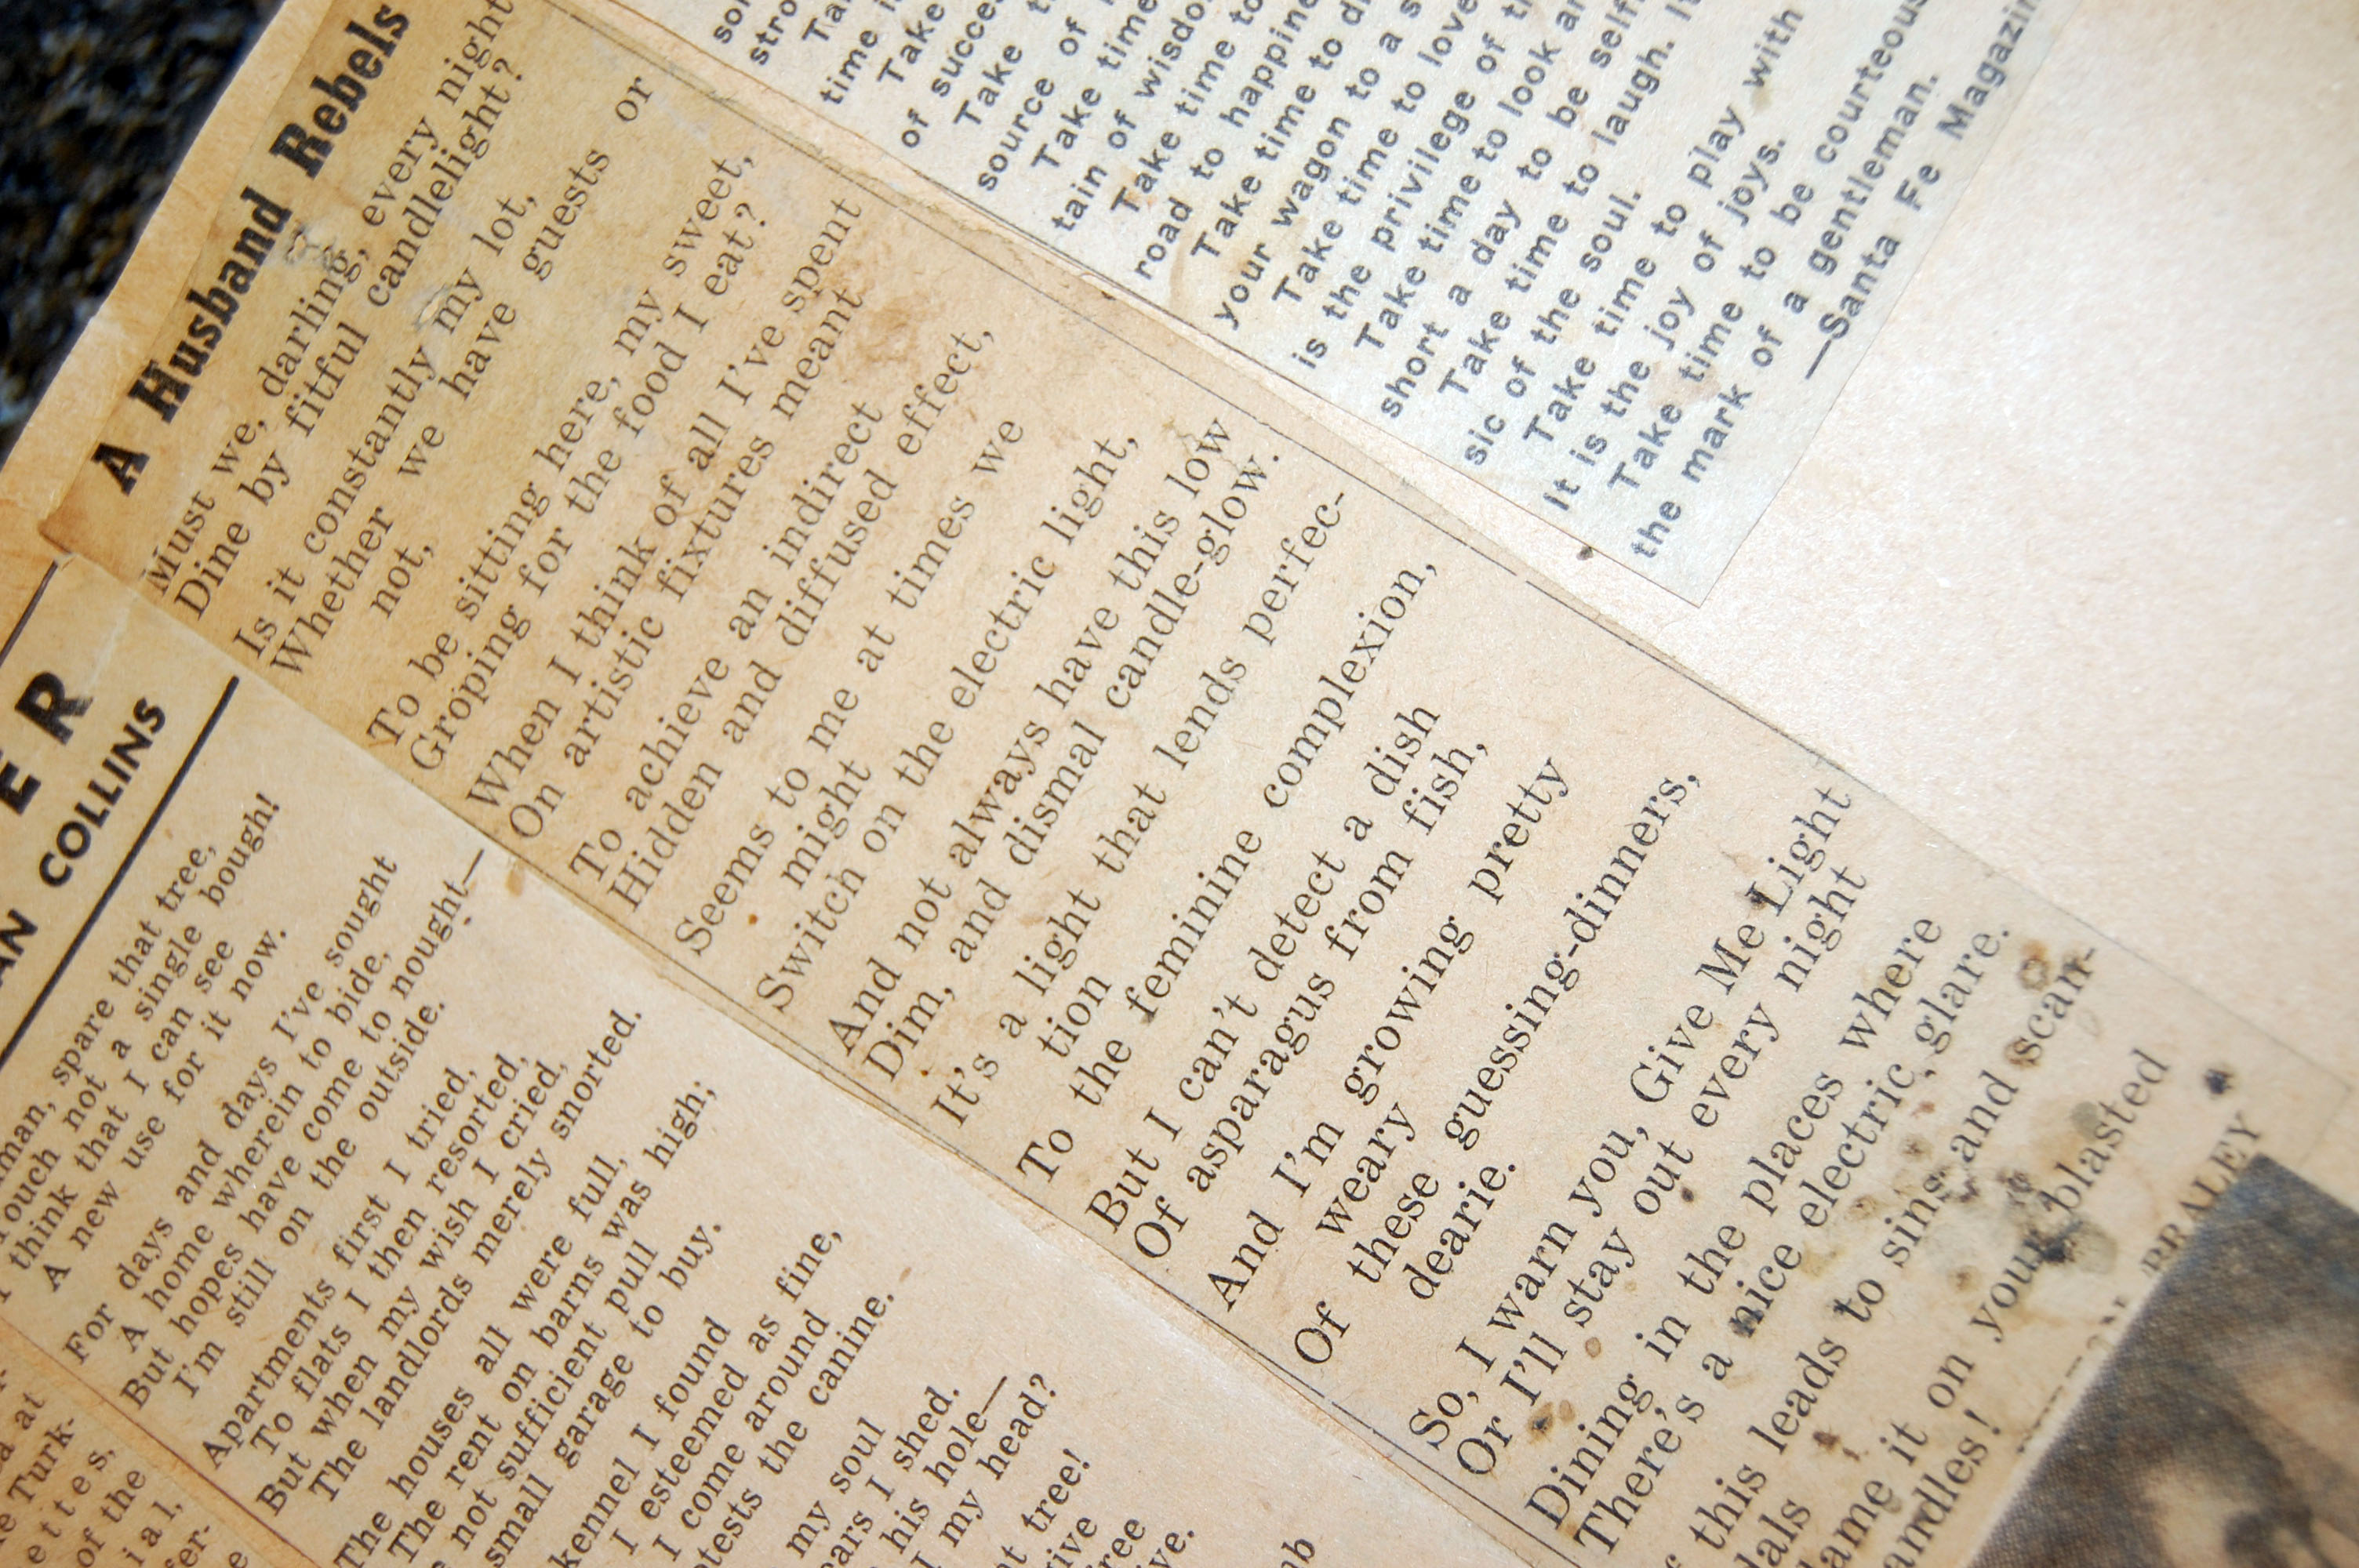 A Husband Rebels
Must we, darling, every night
Dine by fitful candlelight?
Is it constantly my lot,
Whether we have guests or
not,
To be sitting here, my sweet,
Groping for the food I eat?
When I think of all I've spent
On artistic fixtures meant
To achieve an indirect
Hidden and diffused effect,
Seems to me at times we
might
Switch on the electric light,
And not always have this low
Dim, and dismal candle-glow.
It's a light that lends perfec-
tion
To the feminine complexion,
But I can't detect a dish
Of asparagus from fish,
And I'm growing pretty
weary
Of these guessing-dinners,
dearie.
So, I warn you, Give Me Light
Or I'll stay out every night
Dining in the places where
There's a nice electric glare.
this leads to sins and scan-
dals
it on your blasted
BRALEY
time
Take
of succes
Take
source of
Take time
tain of wisdo
Take time to
road to happine
Take time to d
your wagon to a s
Take time to love
is the privilege of
Take time to look
short a day to be self
Take time to laugh.
sic of the soul.
Take time to play with
It is the joy of joys.
Take time to be courteous
the mark of a gentleman.
—Santa Fe Magazin
ER
AN COLLINS
man, spare that tree,
ouch not a single bough!
think that I can see
A new use for it now.
For days and days I've sought
A home wherein to bide,
But hopes have come to nought—
I'm still on the outside.
Apartments first I tried,
To flats I then resorted,
But when my wish I cried,
The landlords merely snorted.
The houses all were full,
The rent on barns was high;
not sufficient pull
small garage to buy.
kennel I found
I esteemed as fine,
I come around
tests the canine.
my soul
ears I shed.
his hole—
I my head?
tree!
at
Turk-
ettes,
of the
ial,